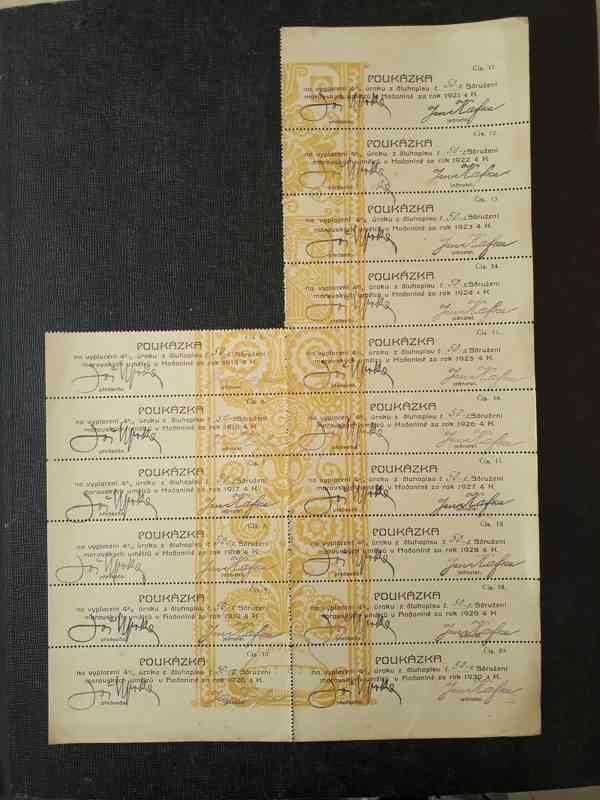 Čís. 11.
POUKÁZKA
na vyplacení 4% úroku z dluhopisu č. 50.- Sdružení
moravských umělců v Hodoníně za rok 1921 4 K.
předseda. jednatel.
Čís. 12.
POUKÁZKA
na vyplacení 4% úroku z dluhopisu č. 50.- Sdružení
moravských umělců v Hodoníně za rok 1922 4 K.
předseda. jednatel.
Čís. 13.
POUKÁZKA
na vyplacení 4% úroku z dluhopisu č. 50.- Sdružení
moravských umělců v Hodoníně za rok 1923 4 K.
předseda. jednatel.
Čís. 14.
POUKÁZKA
na vyplacení 4% úroku z dluhopisu č. 50.- Sdružení
moravských umělců v Hodoníně za rok 1924 4 K.
předseda. jednatel.
POUKÁZKA
na vyplacení 4% úroku z dluhopisu č. 50.- Sdružení
moravských umělců v Hodoníně za rok 1915 4 K.
předseda.
Čís. 15.
POUKÁZKA
na vyplacení 4% úroku z dluhopisu č. 50.- Sdružení
moravských umělců v Hodoníně za rok 1925 4 K.
předseda. jednatel.
Čís. 6.
POUKÁZKA
na vyplacení 4% úroku z dluhopisu č. 50.- Sdružení
moravských umělců v Hodoníně za rok 1916 4 K.
předseda.
Čís. 16.
POUKÁZKA
na vyplacení 4% úroku z dluhopisu č. 50.- Sdružení
moravských umělců v Hodoníně za rok 1926 4 K.
předseda. jednatel.
POUKÁZKA
na vyplacení 4% úroku z dluhopisu č. 50.- Sdružení
moravských umělců v Hodoníně za rok 1917 4 K.
předseda.
Čís. 17.
POUKÁZKA
na vyplacení 4% úroku z dluhopisu č. 50.- Sdružení
moravských umělců v Hodoníně za rok 1927 4 K.
předseda. jednatel.
POUKÁZKA
na vyplacení 4% úroku z dluhopisu č. 50.- Sdružení
moravských umělců v Hodoníně za rok 1918 4 K.
předseda.
Čís. 18.
POUKÁZKA
na vyplacení 4% úroku z dluhopisu č. 50.- Sdružení
moravských umělců v Hodoníně za rok 1928 4 K.
předseda. jednatel.
POUKÁZKA
na vyplacení 4% úroku z dluhopisu č. 50.- Sdružení
moravských umělců v Hodoníně za rok 1919 4 K.
předseda.
Čís. 19.
POUKÁZKA
na vyplacení 4% úroku z dluhopisu č. 50.- Sdružení
moravských umělců v Hodoníně za rok 1929 4 K.
předseda. jednatel.
Čís. 10.
POUKÁZKA
na vyplacení 4% úroku z dluhopisu č. 50.- Sdružení
moravských umělců v Hodoníně za rok 1920 4 K.
předseda.
Čís. 20.
POUKÁZKA
na vyplacení 4% úroku z dluhopisu č. 50.- Sdružení
moravských umělců v Hodoníně za rok 1930 4 K.
předseda. jednatel.